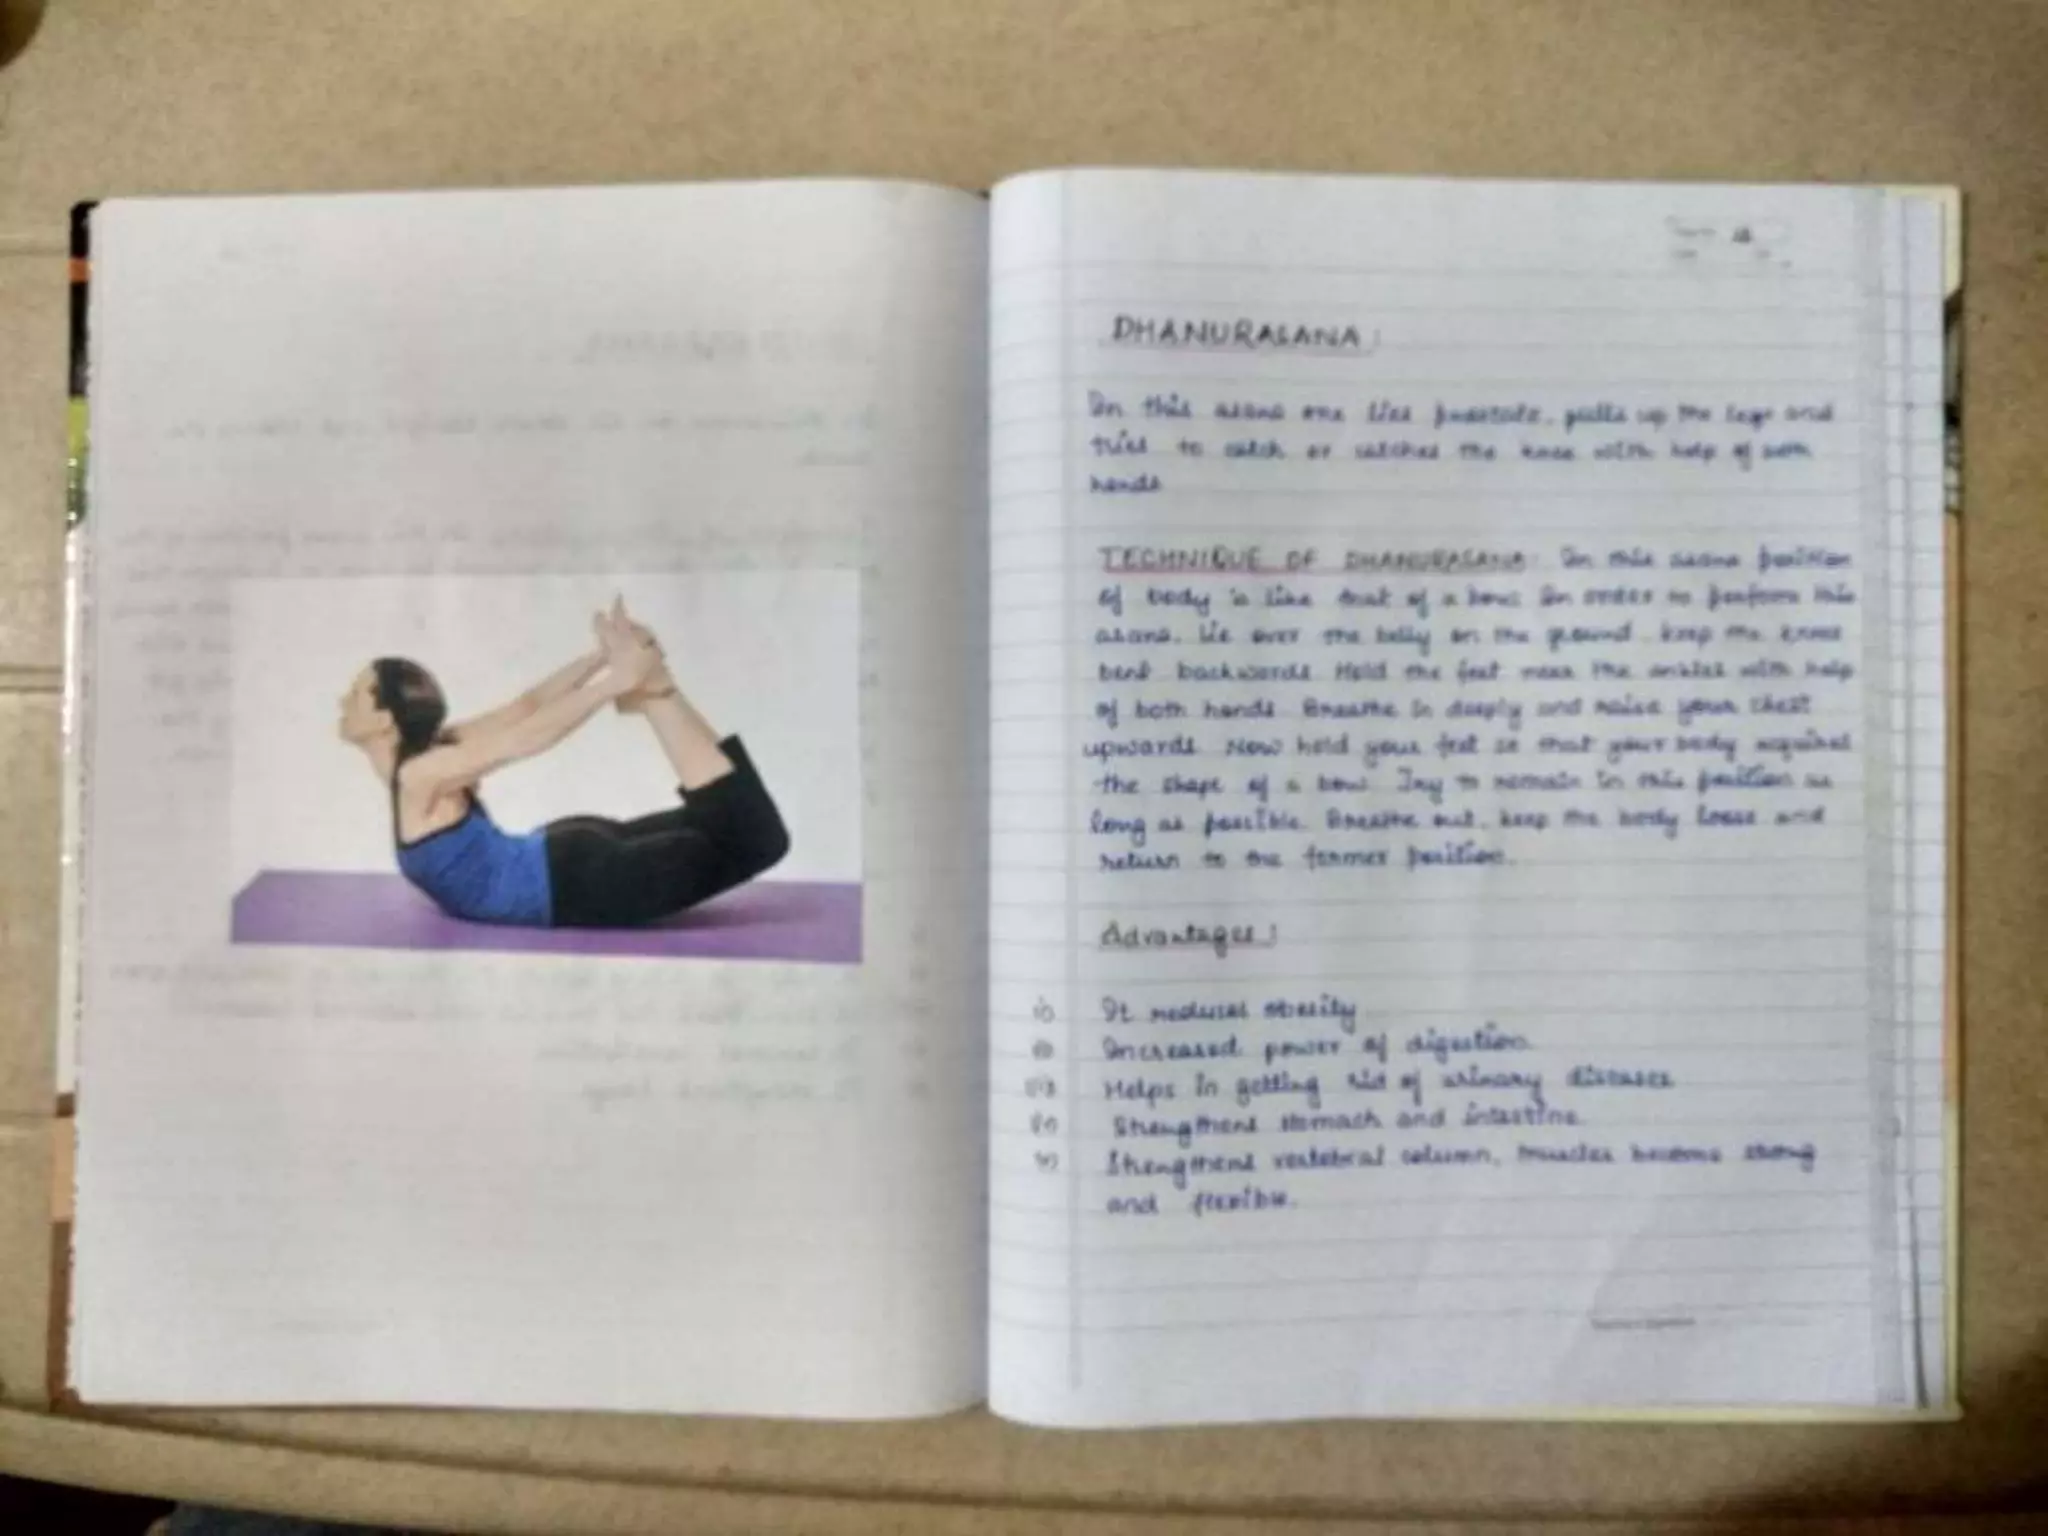 DHANURASANA:
In this asana one lies prostate, pulls up the legs and
tries to catch or catches the knee with help of both
hands
TECHNIQUE OF DHANURASANA: In this asana position
of body is like that of a bow. In order to perform this
asana, lie over the belly on the ground, keep the knees
bent backwards. Hold the feet near the ankles with help
of both hands. Breathe in deeply and raise your chest
upwards. Now hold your feet so that your body acquires
the shape of a bow. Try to remain in this position as
long as possible. Breathe out, keep the body loose and
return to the former position.
Advantages:
i) It reduces obesity
ii) Increased power of digestion
iii) Helps in getting rid of urinary diseases
iv) Strengthens stomach and intestine
v) Strengthens vertebral column, muscles become strong
and flexible.